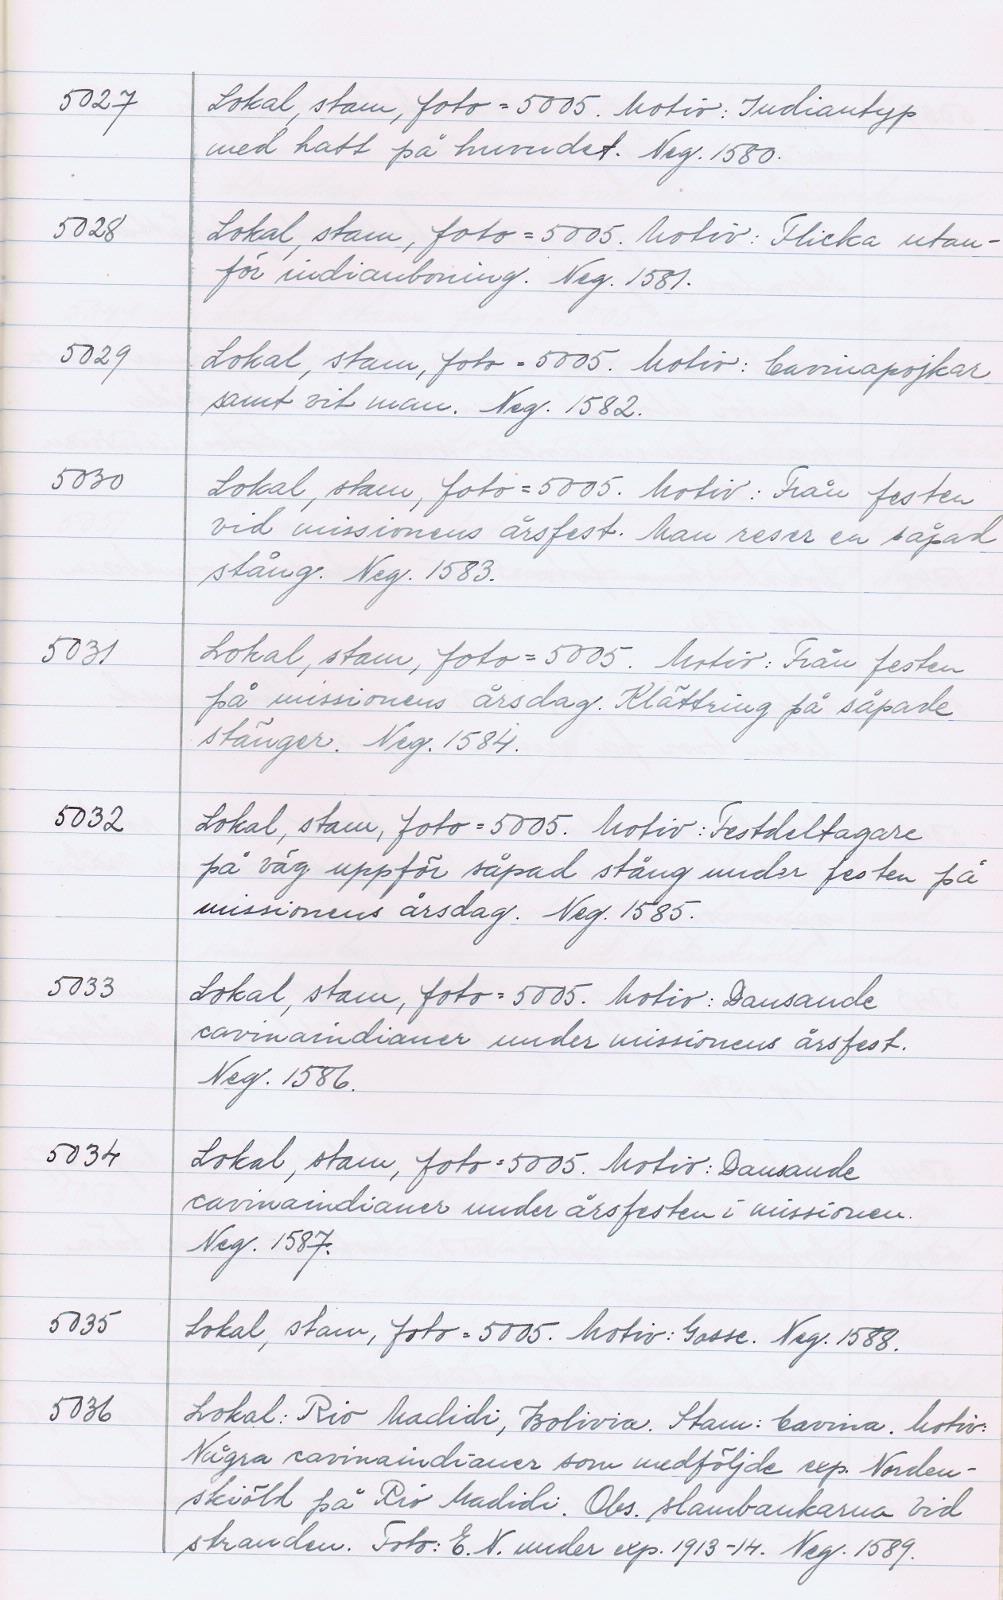 5027 Lokal, stam, foto = 5005. Motiv: Indiantyp
med hatt på huvudet. Neg. 1580.
5028 Lokal, stam, foto = 5005. Motiv: Flicka utan-
för indianboning. Neg. 1581.
5029 Lokal, stam, foto = 5005. Motiv: Cavinapojkar
samt vit man. Neg. 1582.
5030 Lokal, stam, foto = 5005. Motiv: Från festen
vid missionens årsfest. Man reser en såpad
stång. Neg. 1583.
5031 Lokal, stam, foto = 5005. Motiv: Från festen
på missionens årsdag. Klättring på såpade
stänger. Neg. 1584.
5032 Lokal, stam, foto = 5005. Motiv: Festdeltagare
på väg uppför såpad stång under festen på
missionens årsdag. Neg. 1585.
5033 Lokal, stam, foto = 5005. Motiv: Dansande
cavinaindianer under missionens årsfest.
Neg. 1586.
5034 Lokal, stam, foto = 5005. Motiv: Dansande
cavinaindianer under årsfesten i missionen.
Neg. 1587.
5035 Lokal, stam, foto = 5005. Motiv: Gosse. Neg. 1588.
5036 Lokal: Rio Madidi, Bolivia. Stam: Cavina. Motiv:
Några cavinaindianer som medföljde exp. Norden-
skiöld på Rio Madidi. Obs. slambankarna vid
stranden. Foto: E. N. under exp. 1913-14. Neg. 1589.